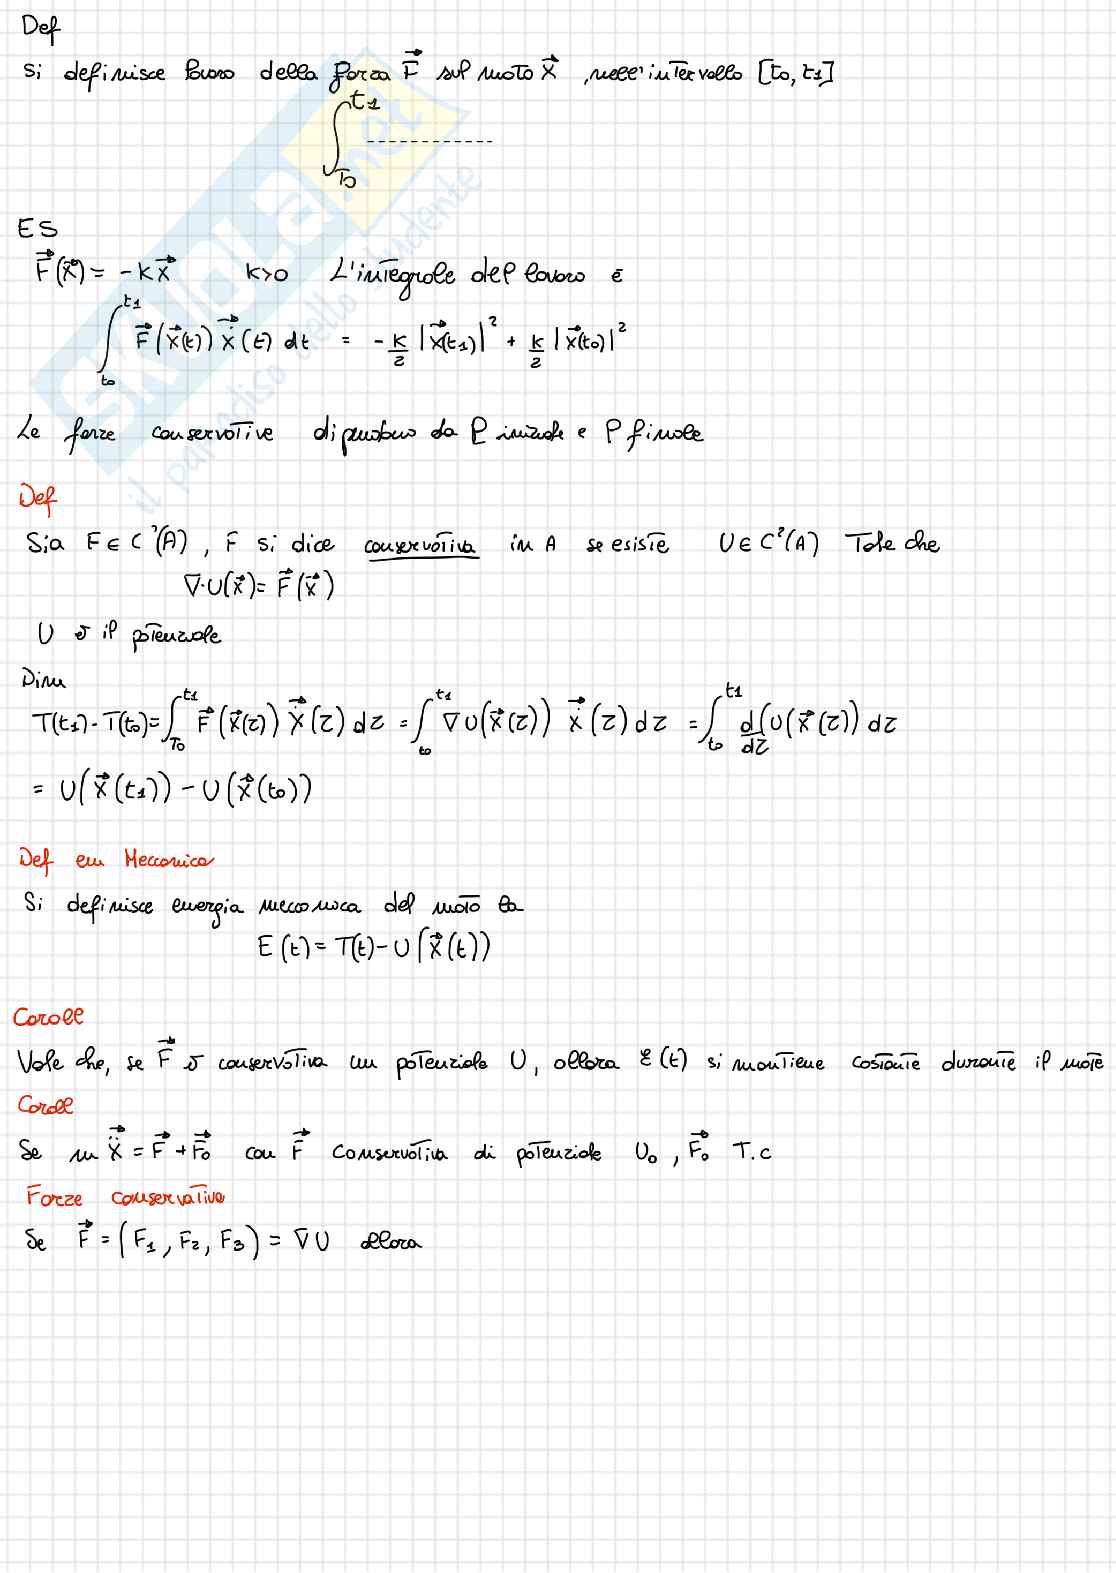 Def
Si definisce lavoro della forza F⃗ sul moto x⃗, nell'intervallo [t₀, t₁]
∫_{t₀}^{t₁} ------------
ES
F⃗(x⃗) = -k x⃗ k>0 L'integrale del lavoro è
∫_{t₀}^{t₁} F⃗(x⃗(t)) ẋ⃗(t) dt = -k/2 |x⃗(t₁)|² + k/2 |x⃗(t₀)|²
Le forze conservative dipendono da P iniziale e P finale
Def
Sia F ∈ C¹(A), F si dice conservativa in A se esiste U ∈ C²(A) Tale che
∇·U(x⃗) = F⃗(x⃗)
U è il potenziale
Dim
T(t₁) - T(t₀) = ∫_{t₀}^{t₁} F⃗(x⃗(τ)) ẋ⃗(τ) dτ = ∫_{t₀}^{t₁} ∇U(x⃗(τ)) ẋ⃗(τ) dτ = ∫_{t₀}^{t₁} d/dτ (U(x⃗(τ)) dτ
= U(x⃗(t₁)) - U(x⃗(t₀))
Def en Meccanica
Si definisce energia meccanica del moto la
E(t) = T(t) - U(x⃗(t))
Coroll
Vale che, se F⃗ è conservativa un potenziale U, allora E(t) si mantiene costante durante il moto
Coroll
Se m ẍ⃗ = F⃗ + F⃗₀ con F⃗ Conservativa di potenziale U₀, F⃗₀ T.c
Forze conservative
Se F⃗ = (F₁, F₂, F₃) = ∇U allora
SKUOLA.net
il paradiso dello studente